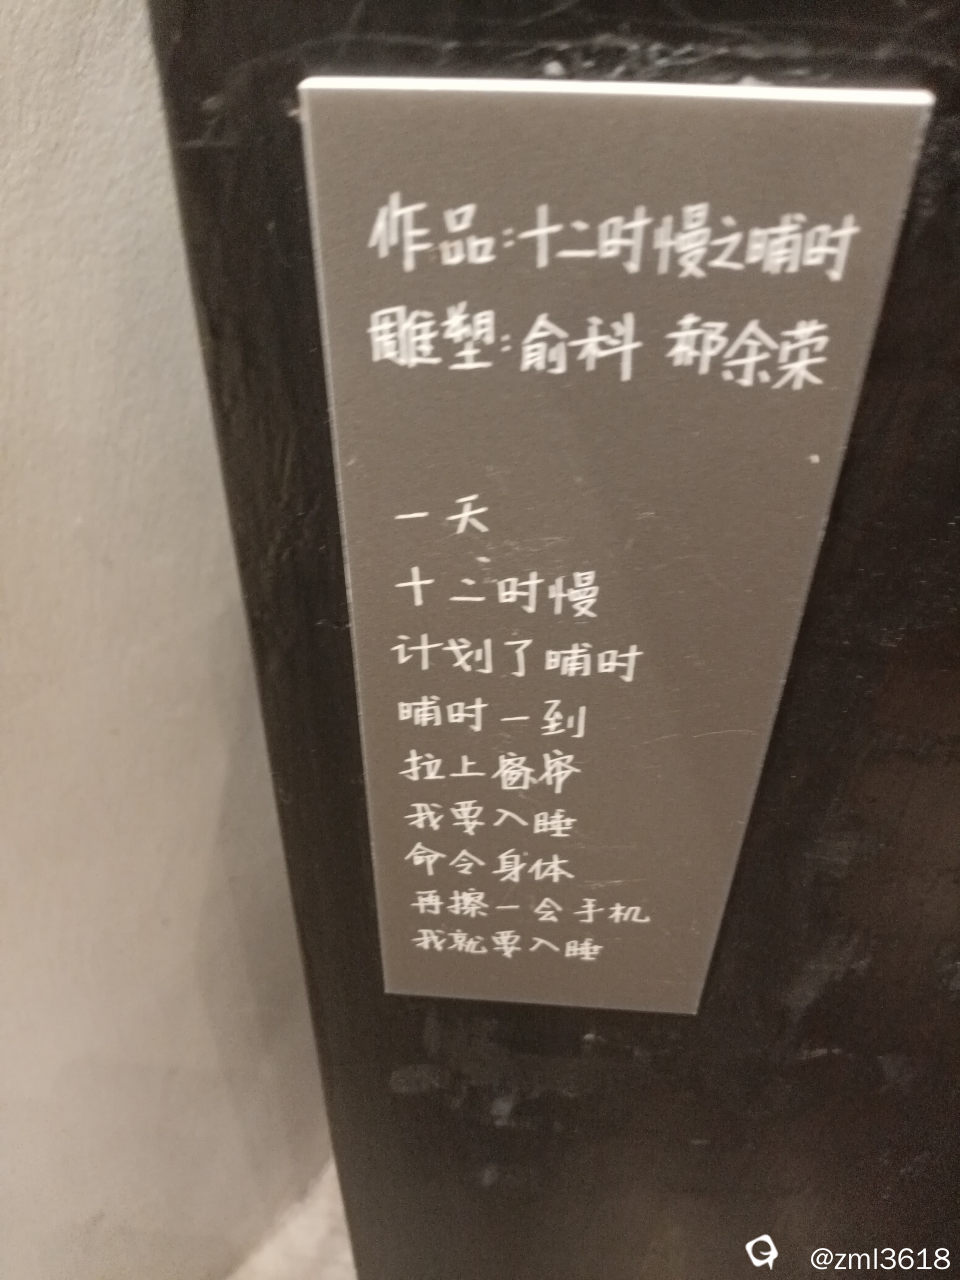 作品:十二时慢之晡时
雕塑:俞科 郝余荣
一天
十二时慢
计划了晡时
晡时一到
拉上窗帘
我要入睡
命令身体
再擦一会手机
我就要入睡
@zml3618